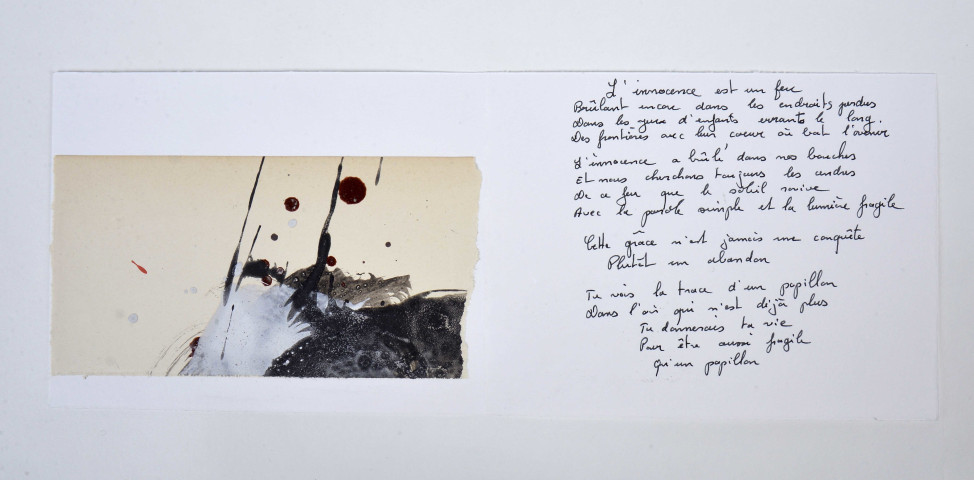 L'innocence est un feu
Brûlant encore dans les endroits perdus
Dans les yeux d'enfants errants le long
Des frontières avec leur coeur où bat l'avenir
L'innocence a brûlé dans nos bouches
Et nous cherchons toujours les cendres
De ce feu que le soleil ravive
Avec la parole simple et la lumière fragile
Cette grâce n'est jamais une conquête
Plutôt un abandon
Tu vois la trace d'un papillon
Dans l'air qui n'est déjà plus
Tu donnerais ta vie
Pour être aussi fragile
Qu'un papillon